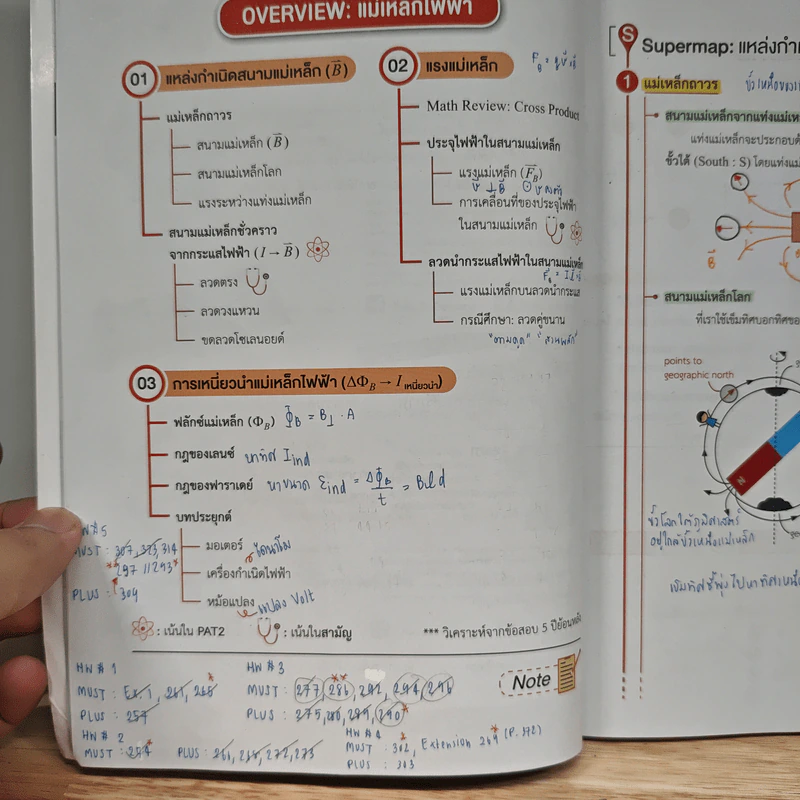 OVERVIEW: แม่เหล็กไฟฟ้า
01 แหล่งกำเนิดสนามแม่เหล็ก (B)
แม่เหล็กถาวร
สนามแม่เหล็ก (B)
สนามแม่เหล็กโลก
แรงระหว่างแท่งแม่เหล็ก
สนามแม่เหล็กชั่วคราว
จากกระแสไฟฟ้า (I → B)
ลวดตรง
ลวดวงแหวน
ขดลวดโซเลนอยด์
02 แรงแม่เหล็ก
Math Review: Cross Product
ประจุไฟฟ้าในสนามแม่เหล็ก
แรงแม่เหล็ก (F_B)
การเคลื่อนที่ของประจุไฟฟ้า
ในสนามแม่เหล็ก
ลวดนำกระแสไฟฟ้าในสนามแม่เหล็ก
แรงแม่เหล็กบนลวดนำกระแส
กรณีศึกษา: ลวดคู่ขนาน
"ตามดูด" "สวนผลัก"
03 การเหนี่ยวนำแม่เหล็กไฟฟ้า (ΔΦ_B → I เหนี่ยวนำ)
ฟลักซ์แม่เหล็ก (Φ_B) Φ_B = B⊥ · A
กฎของเลนซ์ หาทิศ I ind
กฎของฟาราเดย์ หาขนาด ε ind = ΔΦ_B / t = Bld
บทประยุกต์
มอเตอร์ ไดนาโม
เครื่องกำเนิดไฟฟ้า
หม้อแปลง แปลง Volt
: เน้นใน PAT2 : เน้นในสามัญ *** วิเคราะห์จากข้อสอบ 5 ปีย้อนหลัง
MUST : 307, 323, 314
297 // 293*
PLUS : 304
HW # 1
MUST : Ex 1, 261, 268*
PLUS : 257
HW # 2
MUST : 254*
PLUS : 266, 268, 272, 273
HW # 3
MUST : 277, 286**, 292, 294, 296
PLUS : 275, 280, 299, 290*
HW # 4
MUST : 302*, Extension 269* (P. 372)
PLUS : 303
Note
S Supermap: แหล่งกำ
1 แม่เหล็กถาวร
สนามแม่เหล็กจากแท่งแม่เห
แท่งแม่เหล็กจะประกอบด้
ขั้วใต้ (South : S) โดยแท่งแม่
B
สนามแม่เหล็กโลก
ที่เราใช้เข็มทิศบอกทิศขอ
points to
geographic north
N
ขั้วโลกใต้ภูมิศาสตร์
อยู่ใกล้ขั้วเหนือแม่เหล็ก
เข็มทิศชี้พุ่งไปหาทิศเหนือ